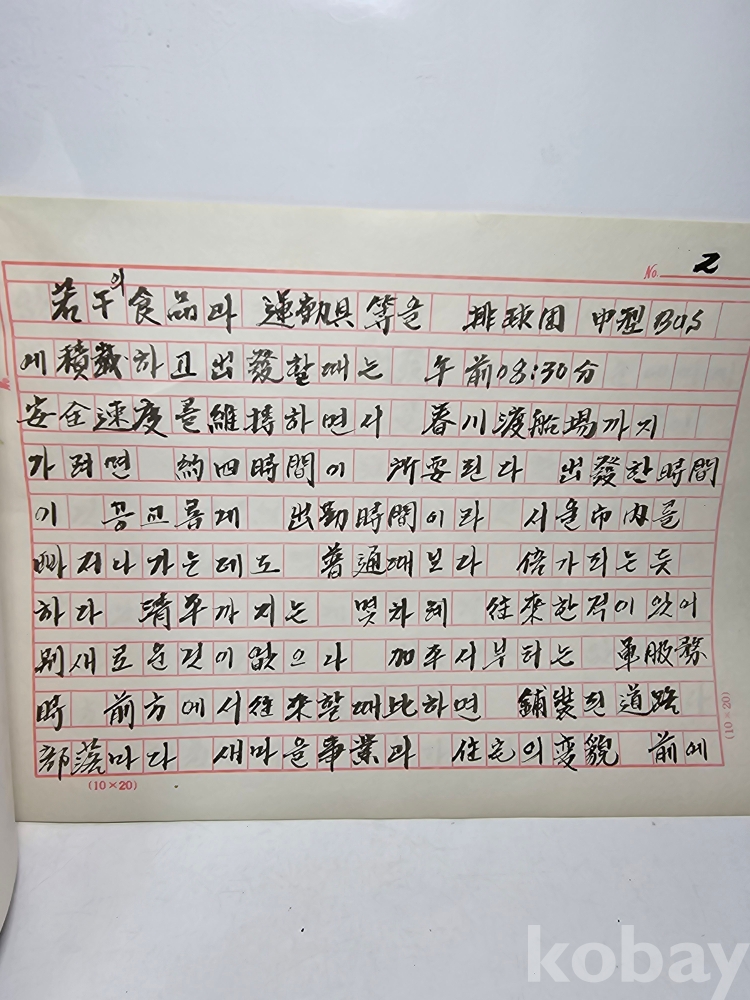 No. 2
若干의 食品과 運動具 等을 排球団 中型 BUS
에 積載하고 出發할때는 午前 08:30分
安全速度를 維持하면서 春川渡船場까지
가려면 約四時間이 所要된다 出發한 時間
이 공교롭게 出勤時間이라 서울市內를
빠저나가는데도 普通때보다 倍가되는듯
하다 淸平까지는 몇차례 往來한적이 있어
別새로운것이 없으나 加平서부터는 軍服務
時 前方에서 往來할때 比하면 鋪裝된 道路
部落마다 새마을事業과 住宅의 変貌 前에
(10×20)
(10×20)
kobay